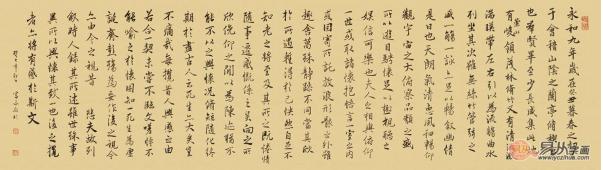 永和九年歲在癸丑暮春之初會
于會稽山陰之蘭亭脩禊事
也群賢畢至少長咸集此地
有崇山峻領茂林脩竹又有清流激
湍暎帶左右引以為流觴曲水
列坐其次雖無絲竹管弦之
盛一觴一詠亦足以暢敘幽情
是日也天朗氣清惠風和暢仰
觀宇宙之大俯察品類之盛
所以遊目騁懷足以極視聽之
娛信可樂也夫人之相與俯仰
一世或取諸懷抱悟言一室之內
或因寄所託放浪形骸之外雖
趣舍萬殊靜躁不同當其欣
於所遇蹔得於己快然自足不
知老之將至及其所之既惓情
隨事遷感慨係之矣向之所
欣俛仰之間以為陳迹猶不
能不以之興懷況脩短隨化終
期於盡古人云死生亦大矣豈
不痛哉每攬昔人興感之由
若合一契未嘗不臨文嗟悼不
能喻之於懷固知一死生為虛
誕齊彭殤為妄作後之視今
亦由今之視昔 悲夫故列
敘時人錄其所述雖世殊事
異所以興懷其致一也後之攬
者亦將有感於斯文